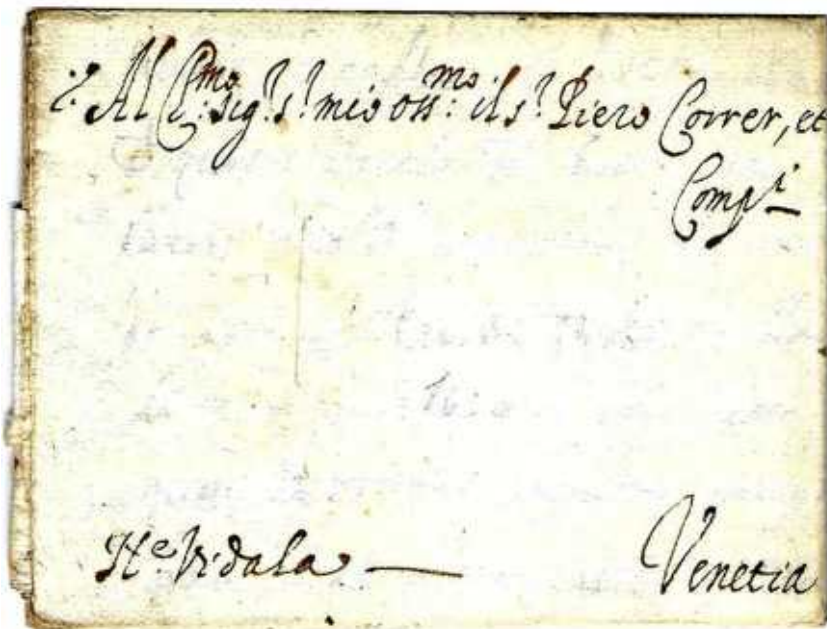 Al Cl.mo sig.r s.r mio oss.mo il s.r Piero Correr, et
Comp.i
Venetia